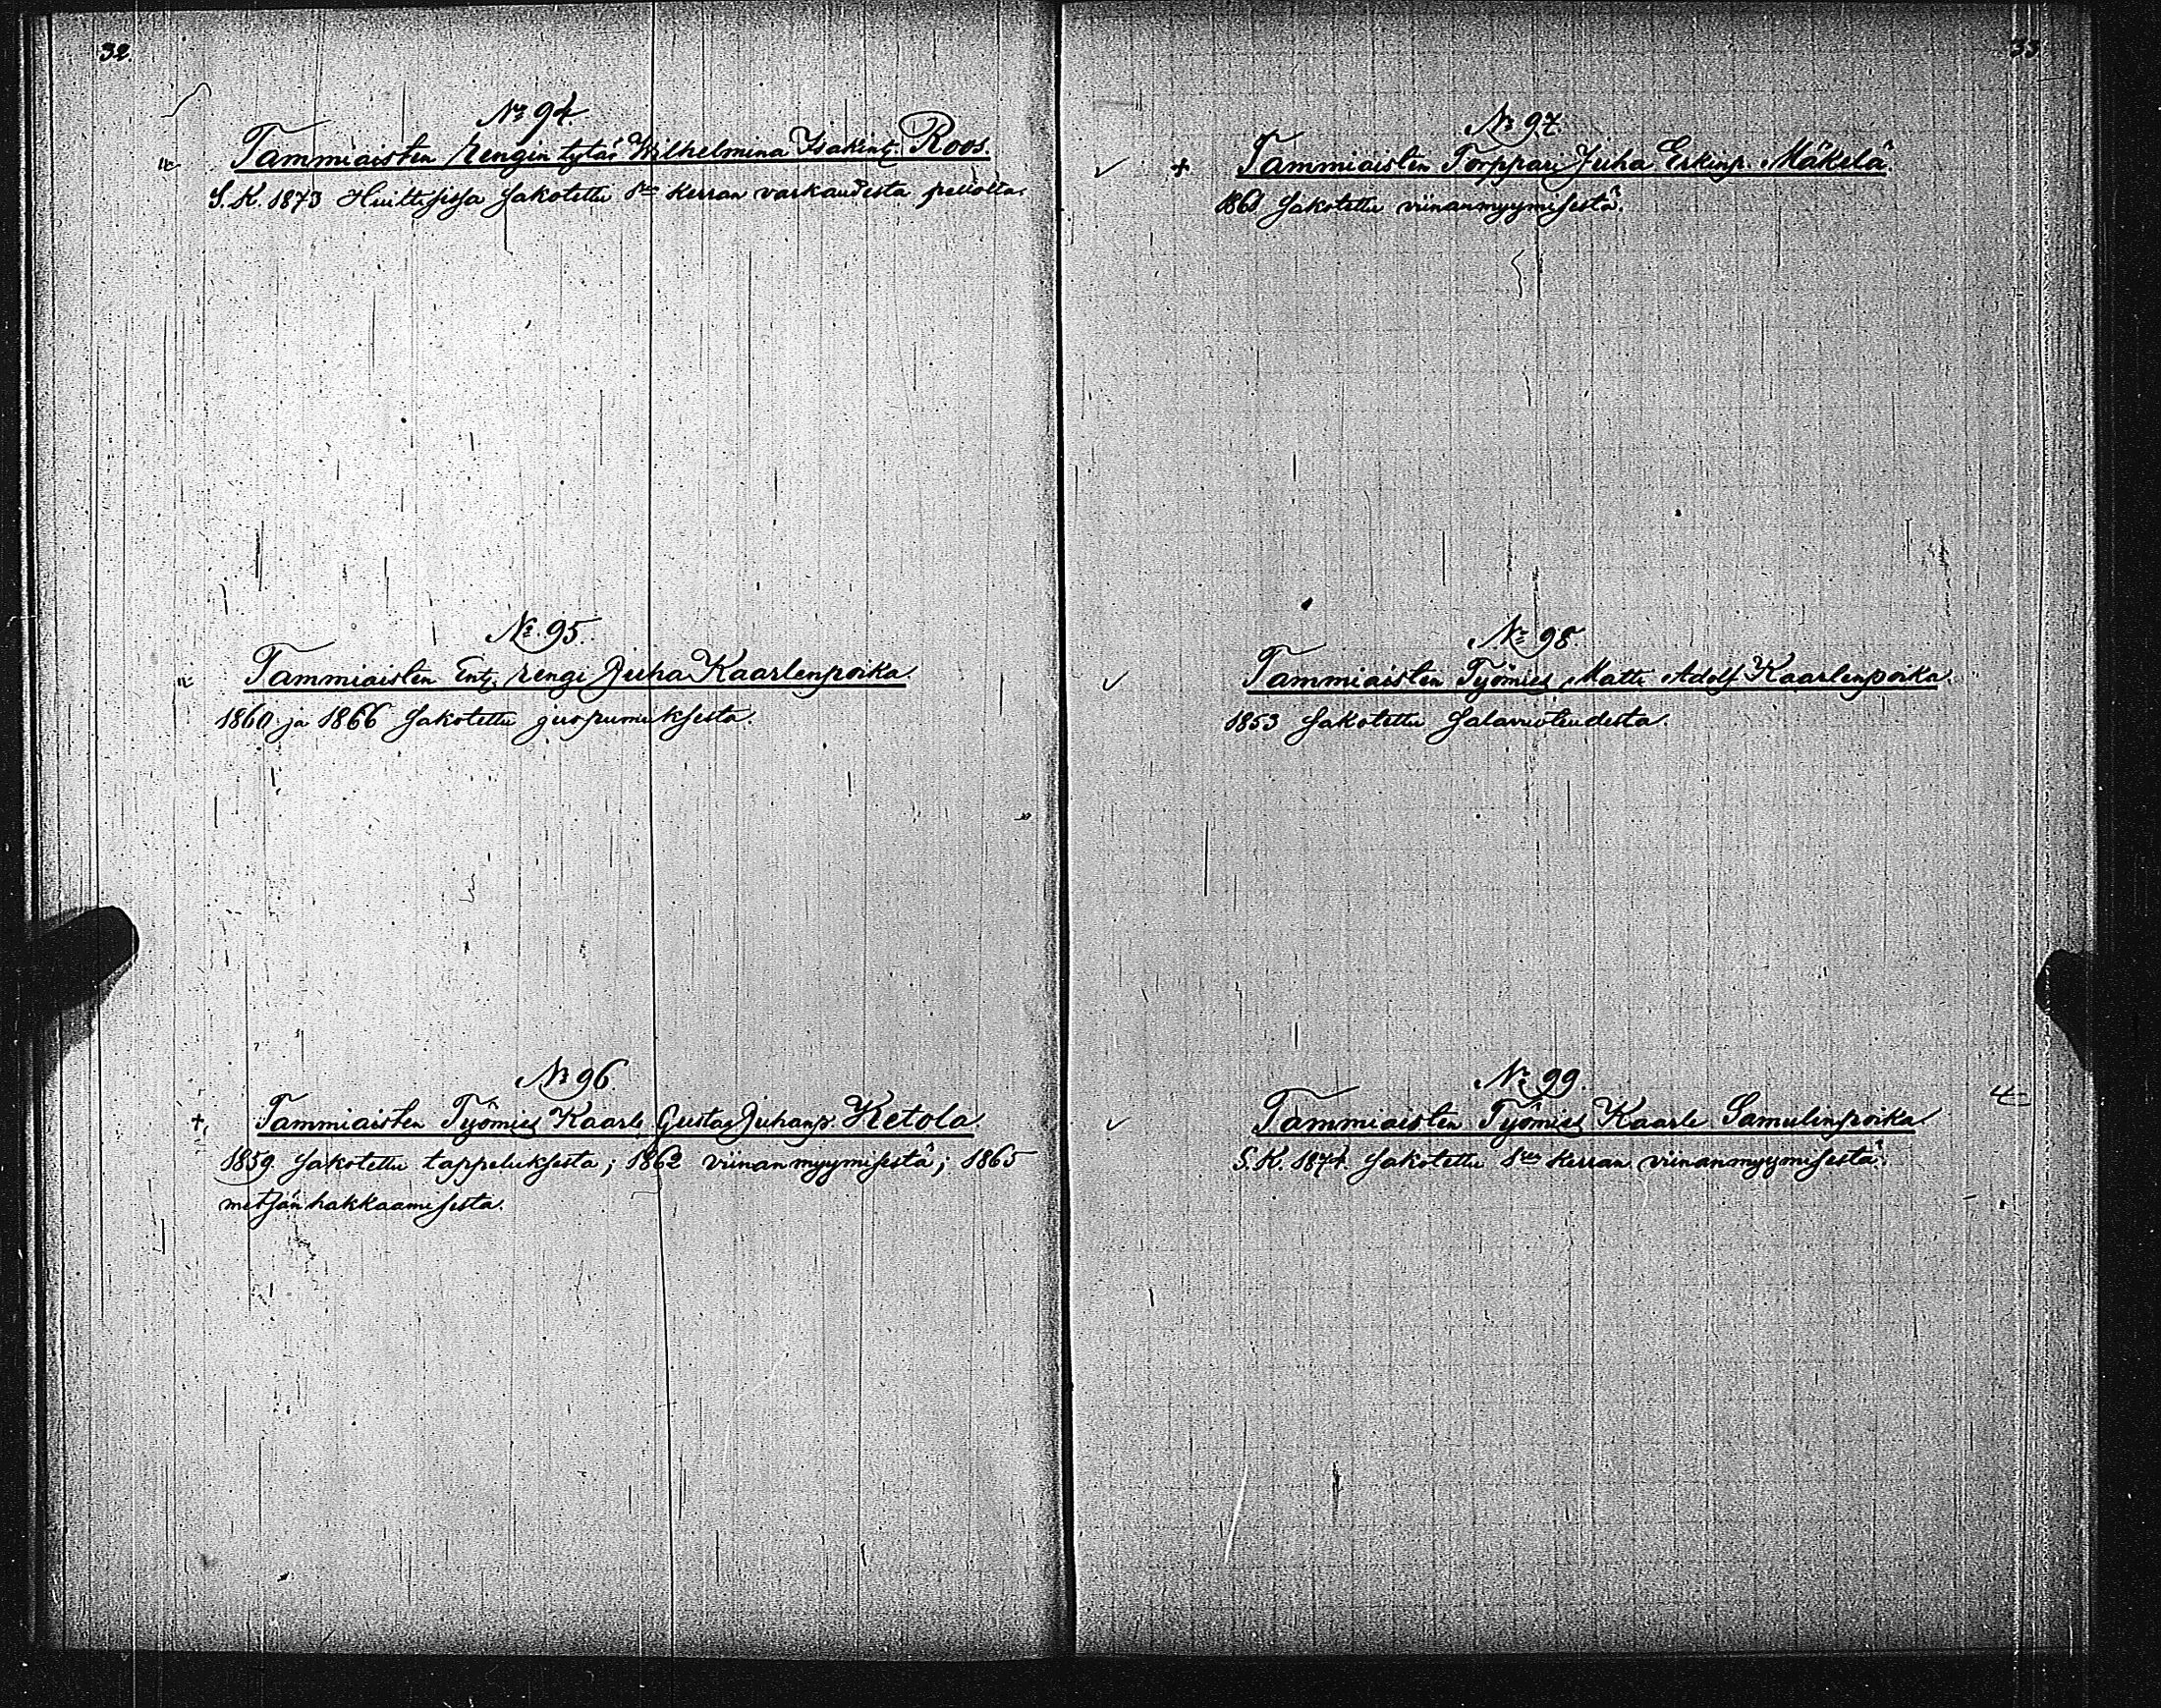 32.
No 94.
Tammiaisten Rengin tytär Wilhelmina Isakint. Roos.
S. K. 1873 Huittisissa sakotettu 1sen kerran varkaudesta pellolta.
No 95.
Tammiaisten Ent. rengi Juha Kaarlenpoika.
1860 ja 1866 sakotettu juopumuksesta.
No 96.
Tammiaisten Työmies Kaarle Gustaf Juhanp. Ketola.
1859. sakotettu tappeluksesta; 1862 viinanmyymisestä; 1865
metsän hakkaamisesta.
33
No 97.
+ Tammiaisten Torppari Juha Erkinp. Mäkelä.
sakotettu viinanmyymisestä.
No 98.
Tammiaisten Työmies Matti Adolf Kaarlenpoika.
1853 sakotettu salavuoteudesta.
No 99.
Tammiaisten Työmies Kaarle Samulinpoika.
S. K. 1874. sakotettu 1sen kerran viinanmyymisestä.